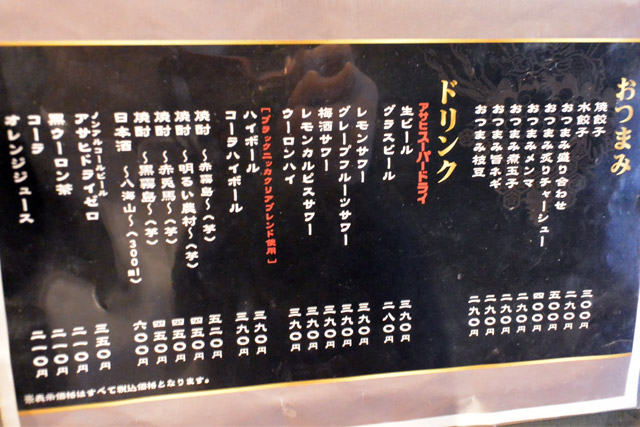 おつまみ
焼餃子 三〇〇円
水餃子 二九〇円
おつまみ盛り合わせ 五〇〇円
おつまみ炙りチャーシュー 四〇〇円
おつまみメンマ 二九〇円
おつまみ煮玉子 二九〇円
おつまみ旨ネギ 二九〇円
おつまみ枝豆 二九〇円
ドリンク
アサヒスーパードライ
生ビール 三九〇円
グラスビール 二八〇円
レモンサワー 三九〇円
グレープフルーツサワー 三九〇円
梅酒サワー 三九〇円
レモンカルピスサワー 三九〇円
ウーロンハイ 三九〇円
[ブラックニッカクリアブレンド使用]
ハイボール 三九〇円
コーラハイボール 三九〇円
焼酎 〜赤霧島〜(芋) 五二〇円
焼酎 〜明るい農村〜(芋) 四五〇円
焼酎 〜赤兎馬〜(芋) 四五〇円
焼酎 〜黒霧島〜(芋) 四五〇円
日本酒 〜八海山〜(300ml) 六〇〇円
ノンアルコールビール
アサヒドライゼロ 三五〇円
黒ウーロン茶 二一〇円
コーラ 二一〇円
オレンジジュース 二一〇円
※表示価格はすべて税込価格となります。